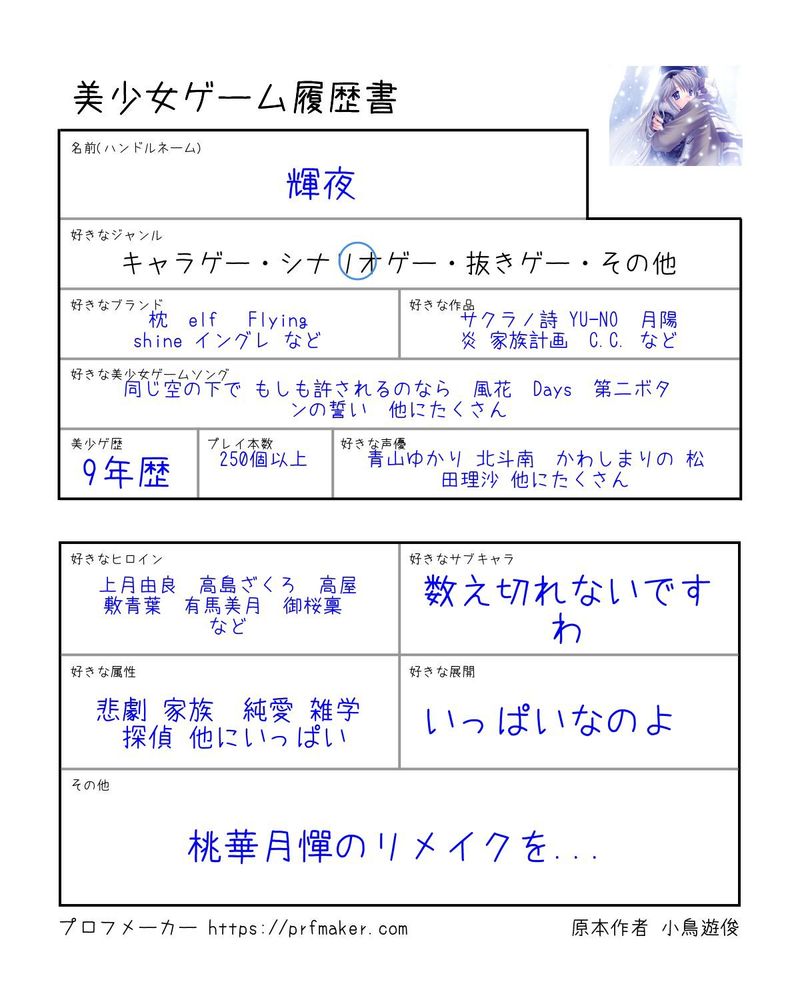 美少女ゲーム履歴書
名前(ハンドルネーム)
輝夜
好きなジャンル
キャラゲー・シナリオゲー・抜きゲー・その他
好きなブランド
枕 elf Flying
shine イングレ など
好きな作品
サクラノ詩 YU-NO 月陽
炎 家族計画 C.C. など
好きな美少女ゲームソング
同じ空の下で もしも許されるのなら 風花 Days 第二ボタ
ンの誓い 他にたくさん
美少ゲ歴
9年歴
プレイ本数
250個以上
好きな声優
青山ゆかり 北斗南 かわしまりの 松
田理沙 他にたくさん
好きなヒロイン
上月由良 高島ざくろ 高屋
敷青葉 有馬美月 御桜稟
など
好きなサブキャラ
数え切れないです
わ
好きな属性
悲劇 家族 純愛 雑学
探偵 他にいっぱい
好きな展開
いっぱいなのよ
その他
桃華月憚のリメイクを...
プロフメーカー https://prfmaker.com
原本作者 小鳥遊俊